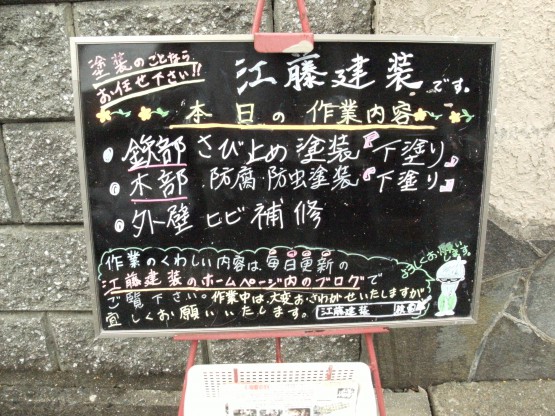 塗装のことなら
お任せ下さい!!
江藤建装です。
本日の作業内容
鉄部 さび止め塗装『下塗り』
木部 防腐・防虫塗装『下塗り』
外壁 ヒビ補修
作業のくわしい内容は、毎日更新の
江藤建装のホームページ内のブログで
ご覧下さい。作業中は大変おさわがせいたしますが
宜しくお願いいたします。
江藤建装
よろしくお願いします